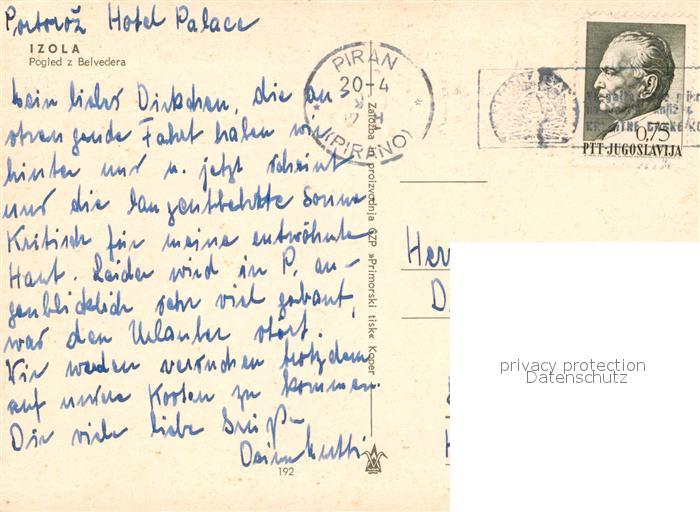 Portorož Hotel Palace
IZOLA
Pogled z Belvedera
Mein liebes Dickchen, die an-
strengende Fahrt haben wir
hinter uns u. jetzt scheint
uns die langentbehrte Sonne
Kritisch für meine entwöhnte
Haut. Leider wird in P. au-
genblicklich sehr viel gebaut,
was den Urlauber stört.
Wir werden versuchen trotzdem
auf unsre Kosten zu kommen.
Dir viele liebe Grüße
Deine Mutti
192
Založba in proizvodnja GZP »Primorski tisk« Koper
PIRAN
30-4
(PIRANO)
0,75
PTT-JUGOSLAVIJA
Her
D
privacy protection
Datenschutz